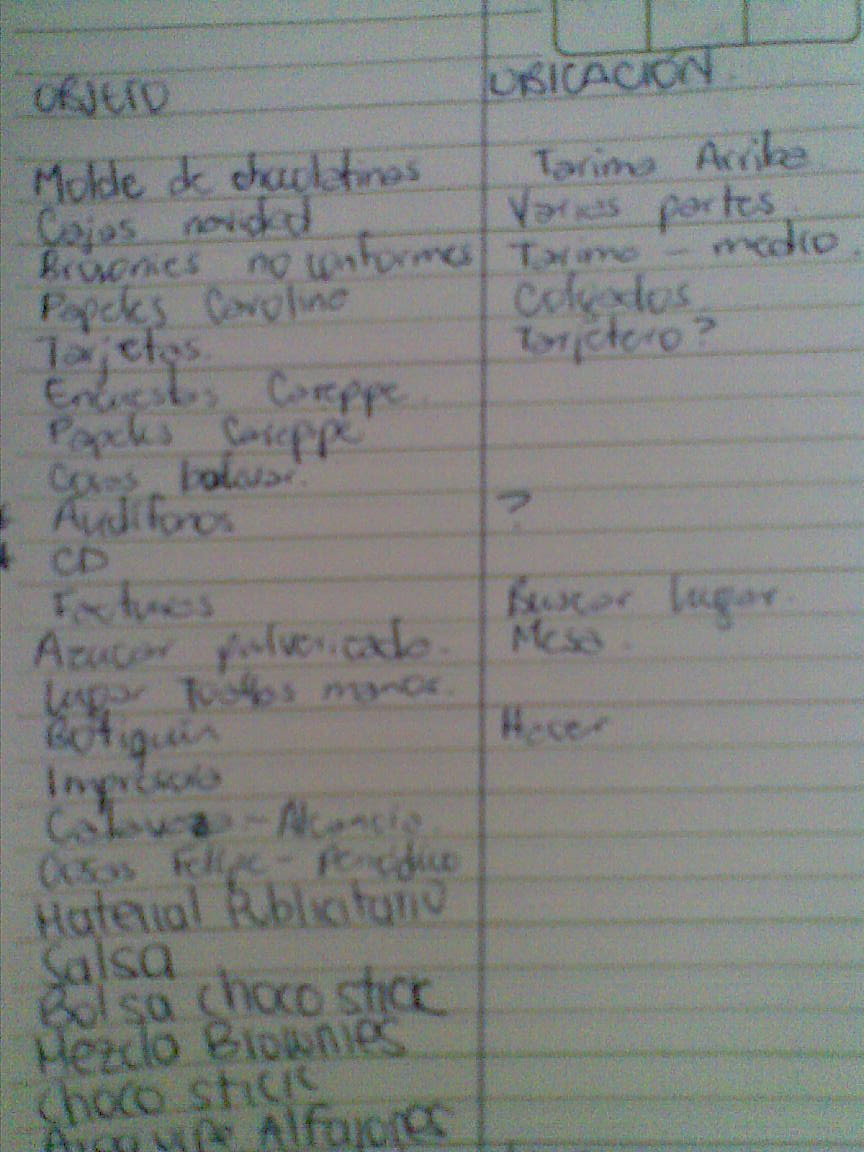 OBJETO UBICACIÓN.
Molde de chocolatinas Tarima Arriba
Cajas navidad Varias partes.
Brownies no conformes Tarima - medio.
Papeles Carolina Colgados
Tarjetas. Tarjetero?
Encuestas Careppe.
Papeles Careppe
Cosas
Audífonos ?
CD
Facturas Buscar lugar.
Azucar pulverizada. Mesa.
Lugar Toallas manos.
Botiquin Hacer
Impresora
Calavera - Alcancia
Cosas Felipe - Periódico
Material Publicitario
Salsa
Bolsa choco stick
Mezcla Brownies
Choco sticks
Arequipe Alfajores